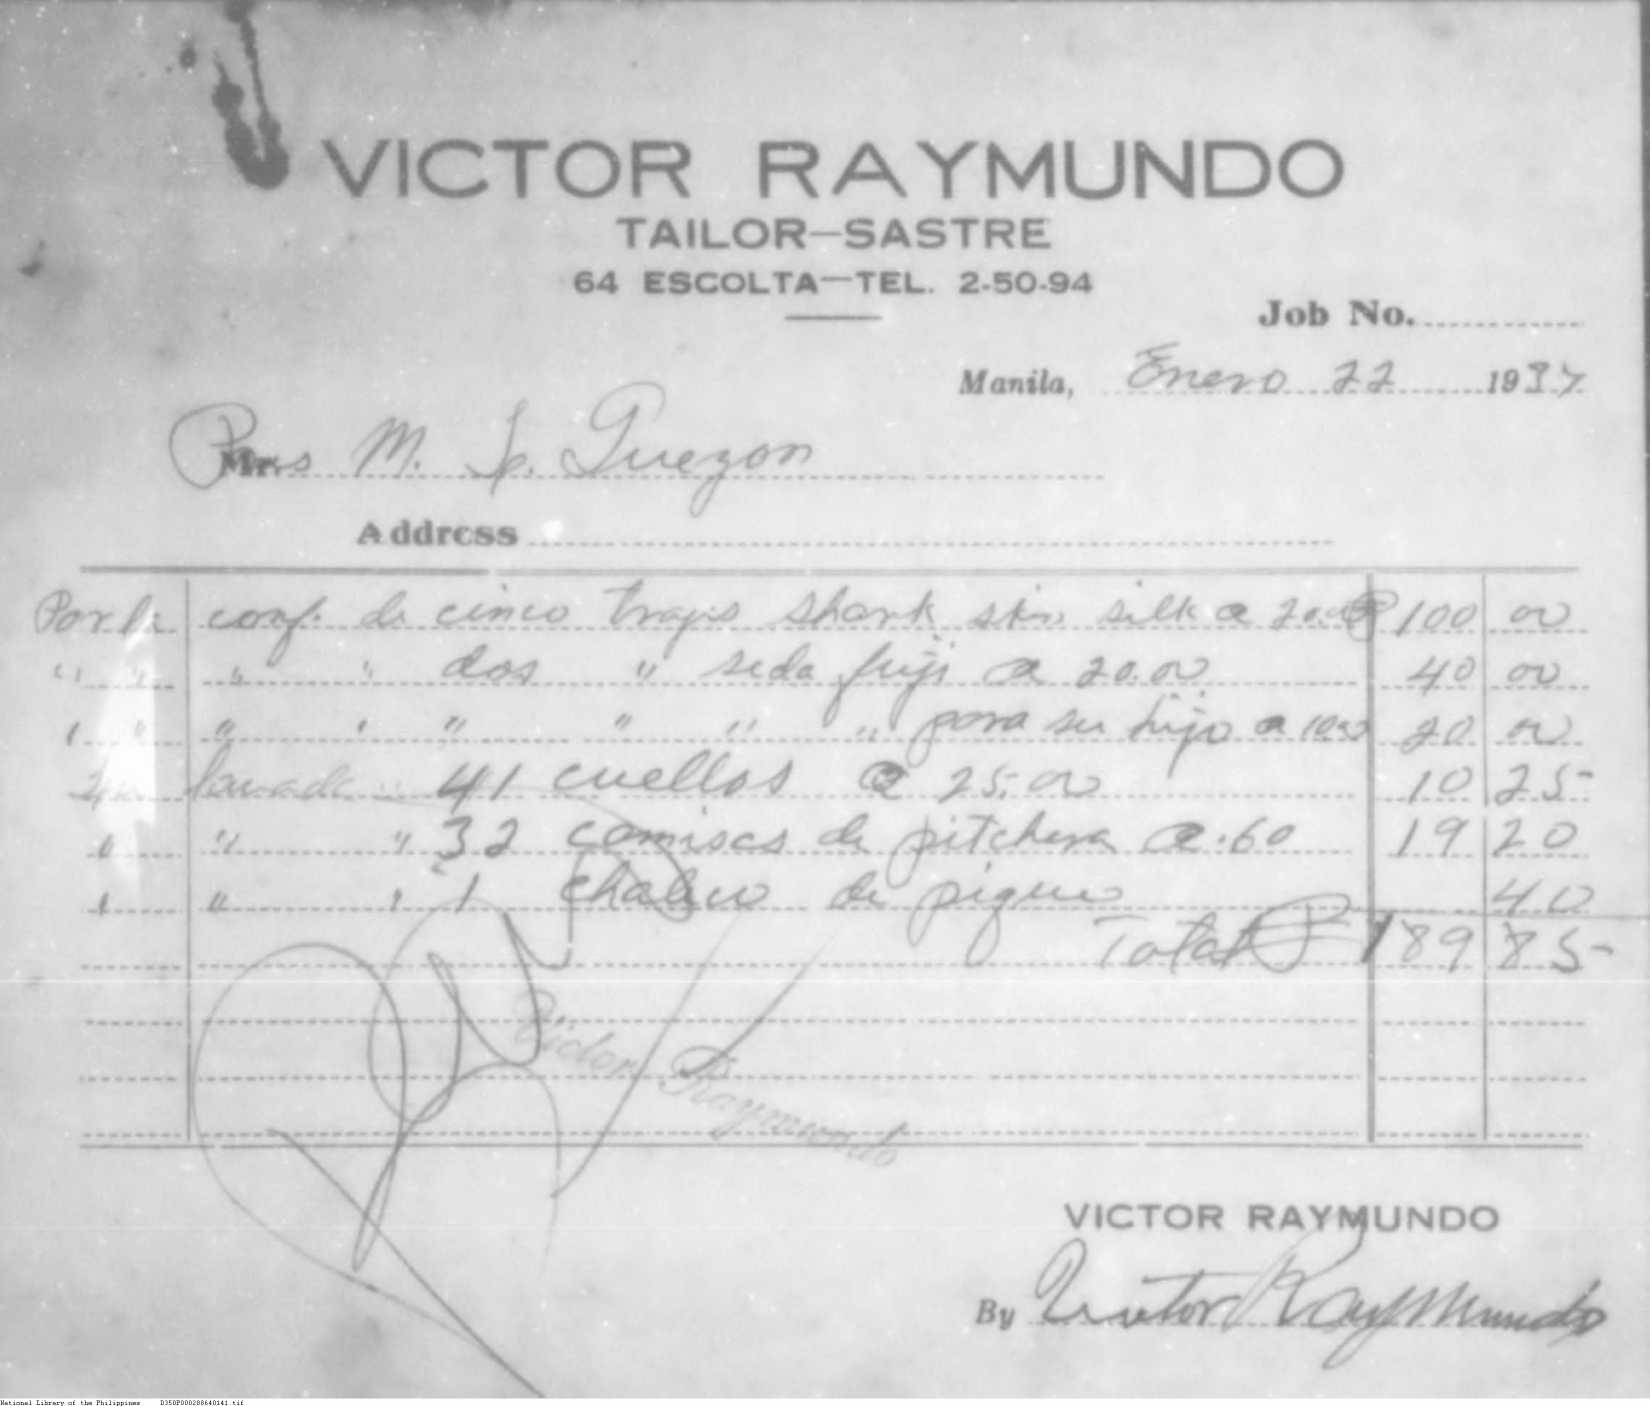 VICTOR RAYMUNDO
TAILOR—SASTRE
64 ESCOLTA—TEL. 2-50-94
Job No.
Manila, Enero 22 1937
Pres M. L. Quezon
Address
Por la conf. de cinco trajes shark skin silk a 20.00 ₱ 100 00
" " " " dos " seda fuji a 20.00 40 00
" " " " " " " " para su hijo a 10.00 20 00
lavada " 41 cuellos @ 25.00 10 25
" " " 32 camisas de pitchera @ .60 19 20
" " " 1 chaleco de pique 40
Total ₱ 189 85
Victor Raymundo
VICTOR RAYMUNDO
By Victor Raymundo
National Library of the Philippines D350P000288640141.tif